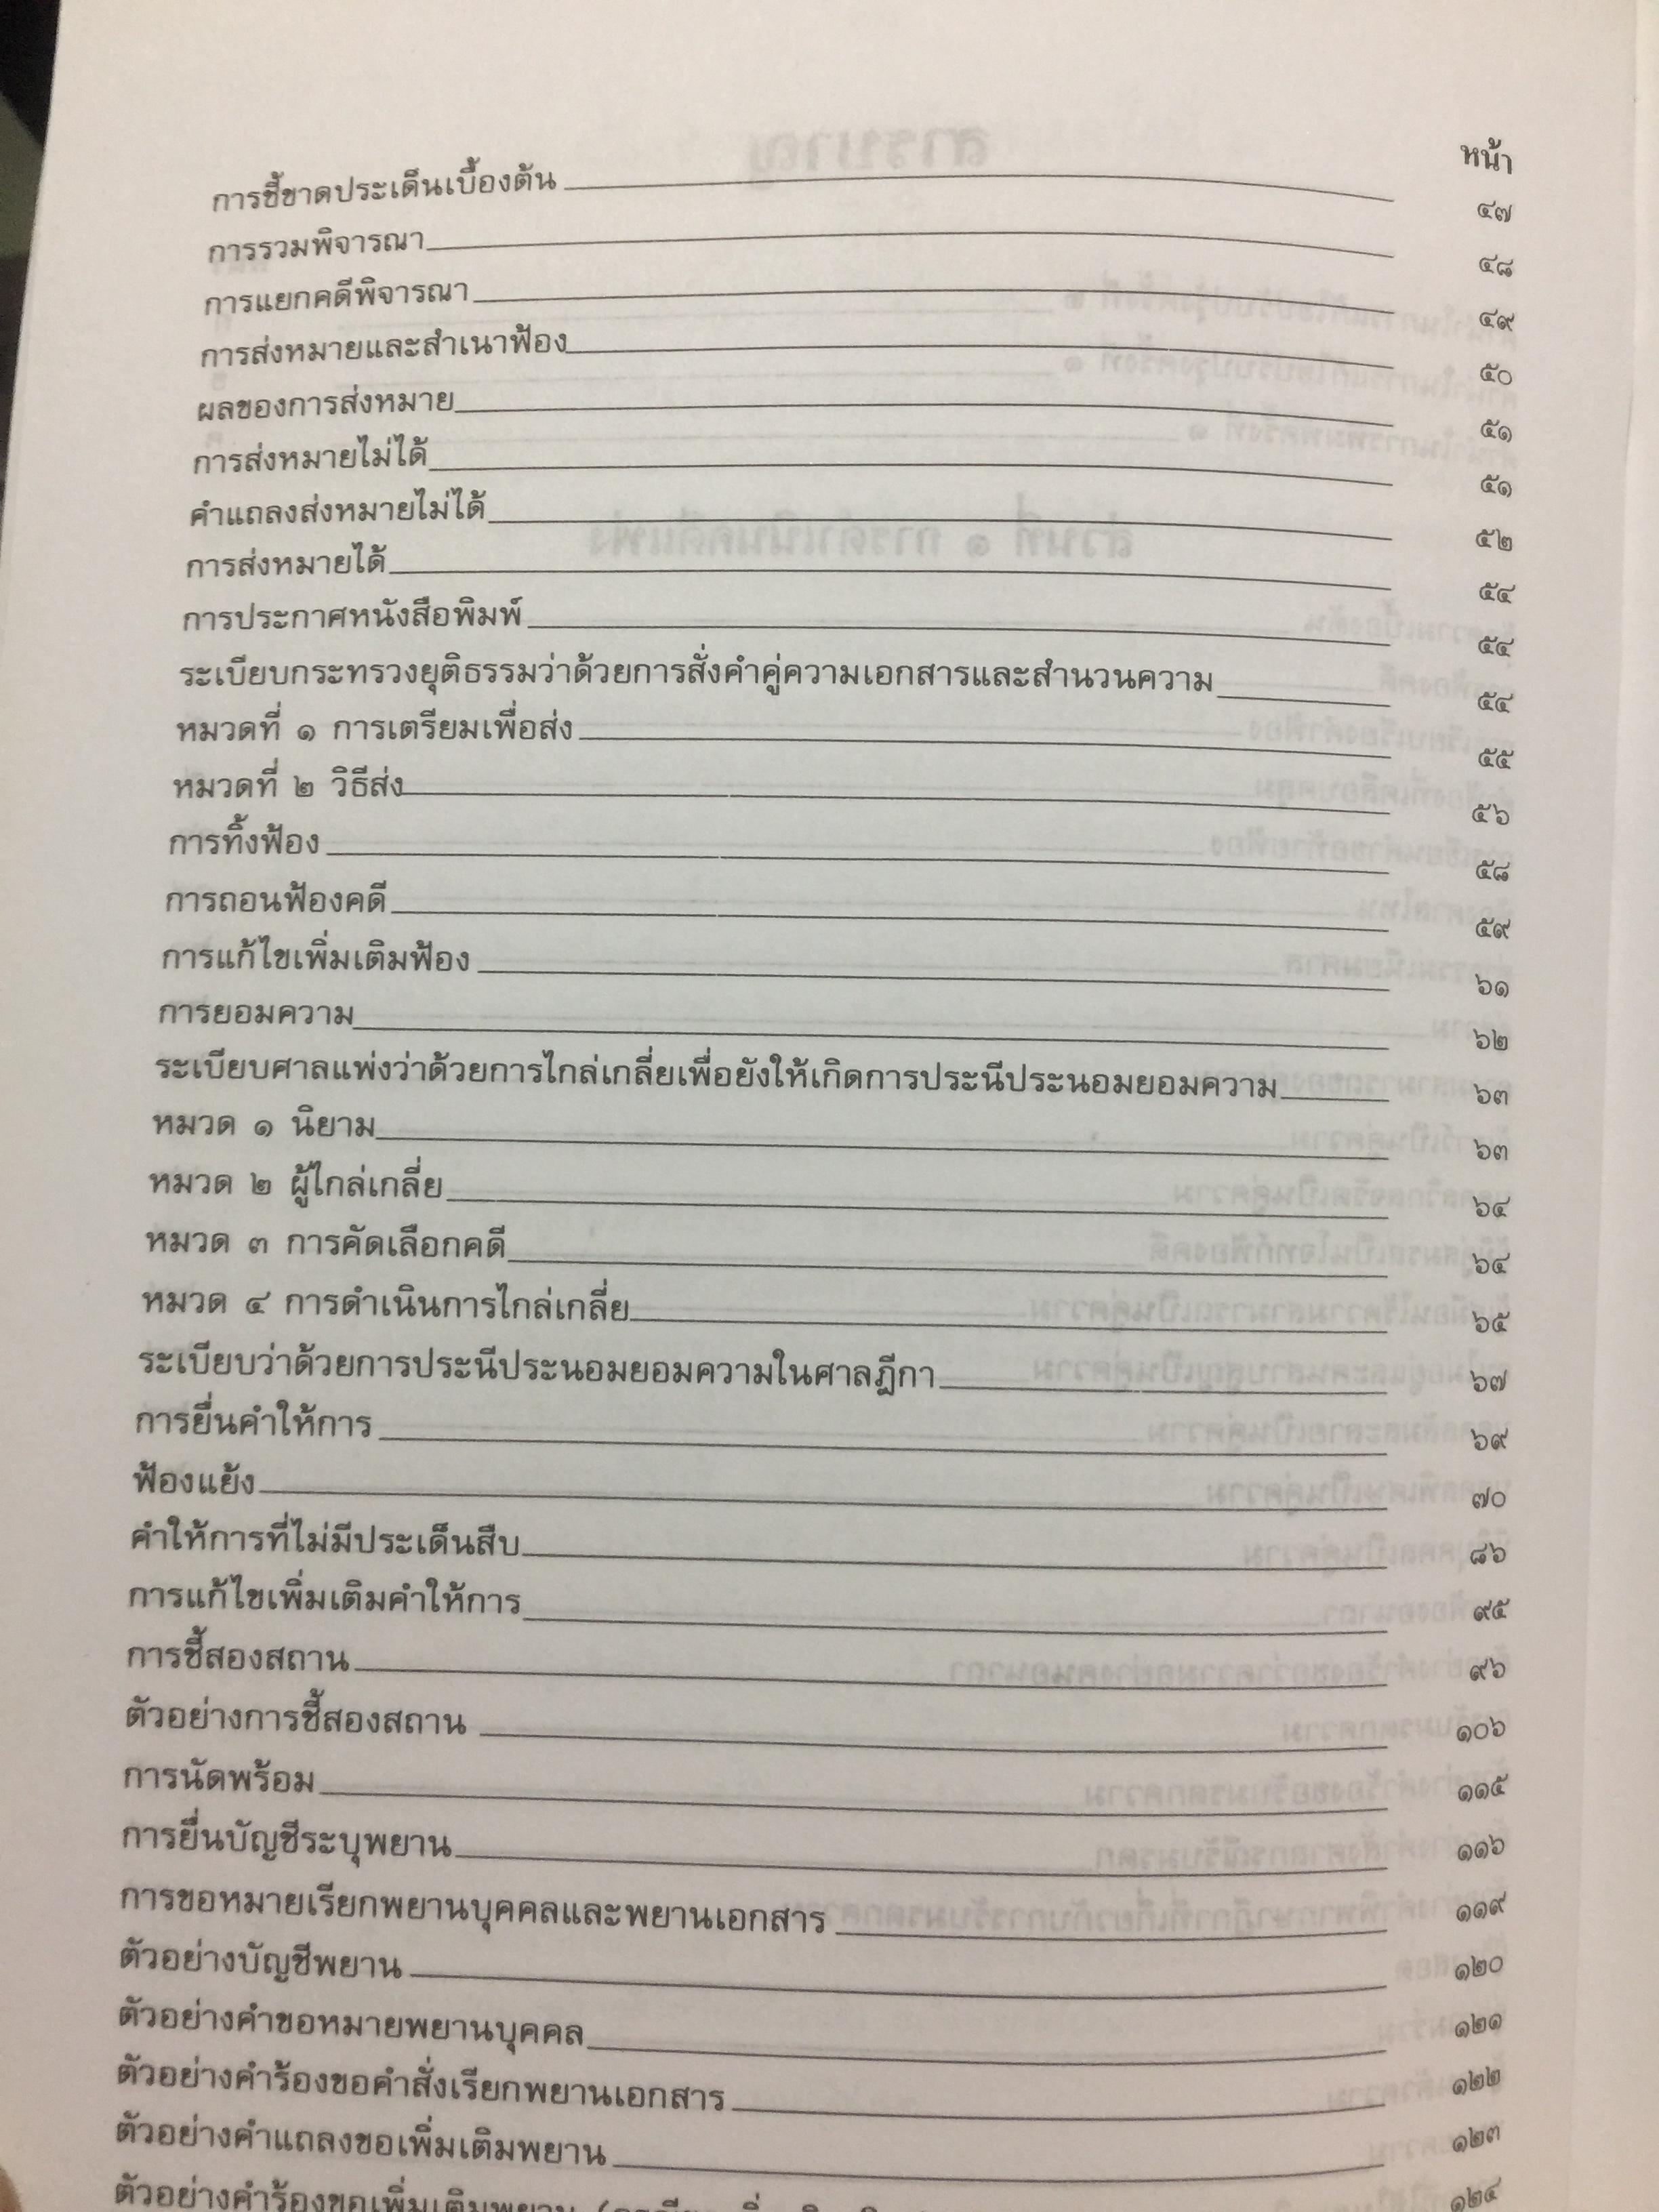 หน้า
การชี้ขาดประเด็นเบื้องต้น ๔๗
การรวมพิจารณา ๔๘
การแยกคดีพิจารณา ๔๙
การส่งหมายและสำเนาฟ้อง ๕๐
ผลของการส่งหมาย ๕๑
การส่งหมายไม่ได้ ๕๑
คำแถลงส่งหมายไม่ได้ ๕๒
การส่งหมายได้ ๕๔
การประกาศหนังสือพิมพ์ ๕๔
ระเบียบกระทรวงยุติธรรมว่าด้วยการสั่งคำคู่ความเอกสารและสำนวนความ ๕๔
หมวดที่ ๑ การเตรียมเพื่อส่ง ๕๕
หมวดที่ ๒ วิธีส่ง ๕๖
การทิ้งฟ้อง ๕๘
การถอนฟ้องคดี ๕๙
การแก้ไขเพิ่มเติมฟ้อง ๖๑
การยอมความ ๖๒
ระเบียบศาลแพ่งว่าด้วยการไกล่เกลี่ยเพื่อยังให้เกิดการประนีประนอมยอมความ ๖๓
หมวด ๑ นิยาม ๖๓
หมวด ๒ ผู้ไกล่เกลี่ย ๖๔
หมวด ๓ การคัดเลือกคดี ๖๔
หมวด ๔ การดำเนินการไกล่เกลี่ย ๖๕
ระเบียบว่าด้วยการประนีประนอมยอมความในศาลฎีกา ๖๗
การยื่นคำให้การ ๖๙
ฟ้องแย้ง ๗๐
คำให้การที่ไม่มีประเด็นสืบ ๘๖
การแก้ไขเพิ่มเติมคำให้การ ๙๕
การชี้สองสถาน ๙๖
ตัวอย่างการชี้สองสถาน ๑๐๖
การนัดพร้อม ๑๑๕
การยื่นบัญชีระบุพยาน ๑๑๖
การขอหมายเรียกพยานบุคคลและพยานเอกสาร ๑๑๙
ตัวอย่างบัญชีพยาน ๑๒๐
ตัวอย่างคำขอหมายพยานบุคคล ๑๒๑
ตัวอย่างคำร้องขอคำสั่งเรียกพยานเอกสาร ๑๒๒
ตัวอย่างคำแถลงขอเพิ่มเติมพยาน ๑๒๓
ตัวอย่างคำร้องขอเพิ่มเติมพยาน ๑๒๔